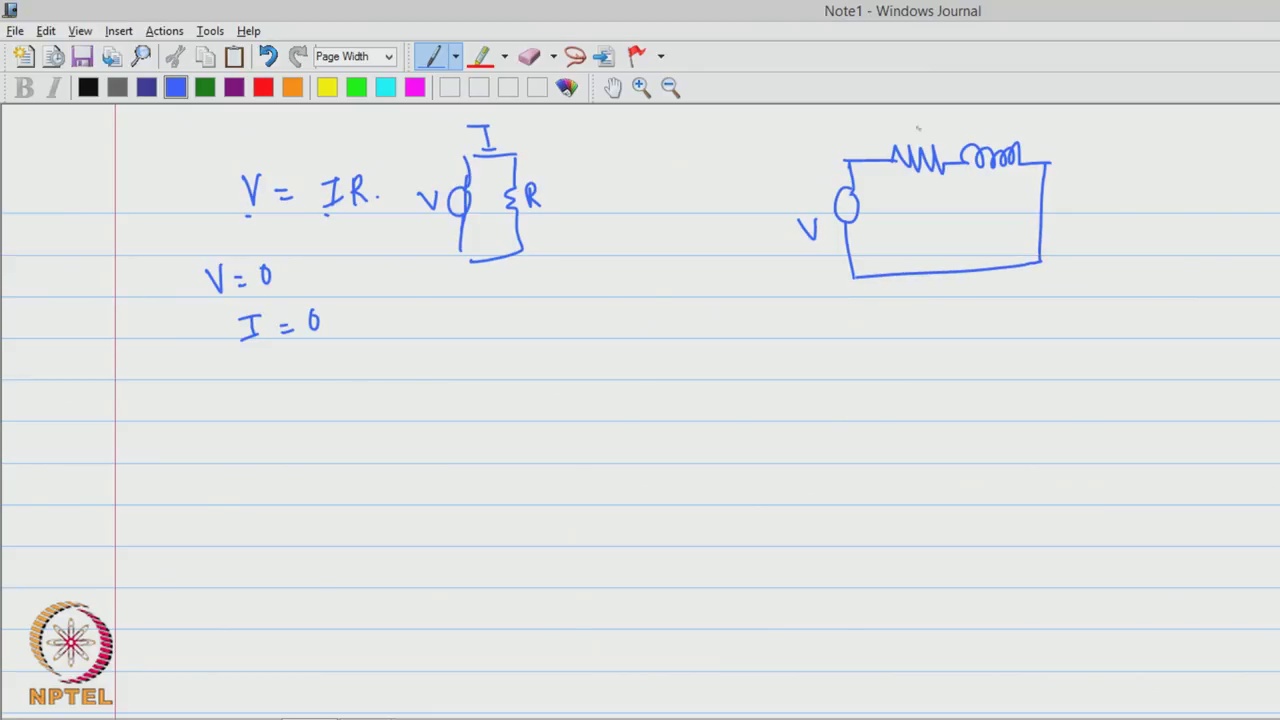 Note1 - Windows Journal
File Edit View Insert Actions Tools Help
Page Width
B I
I
V = IR.
V
R
V
V = 0
I = 0
NPTEL